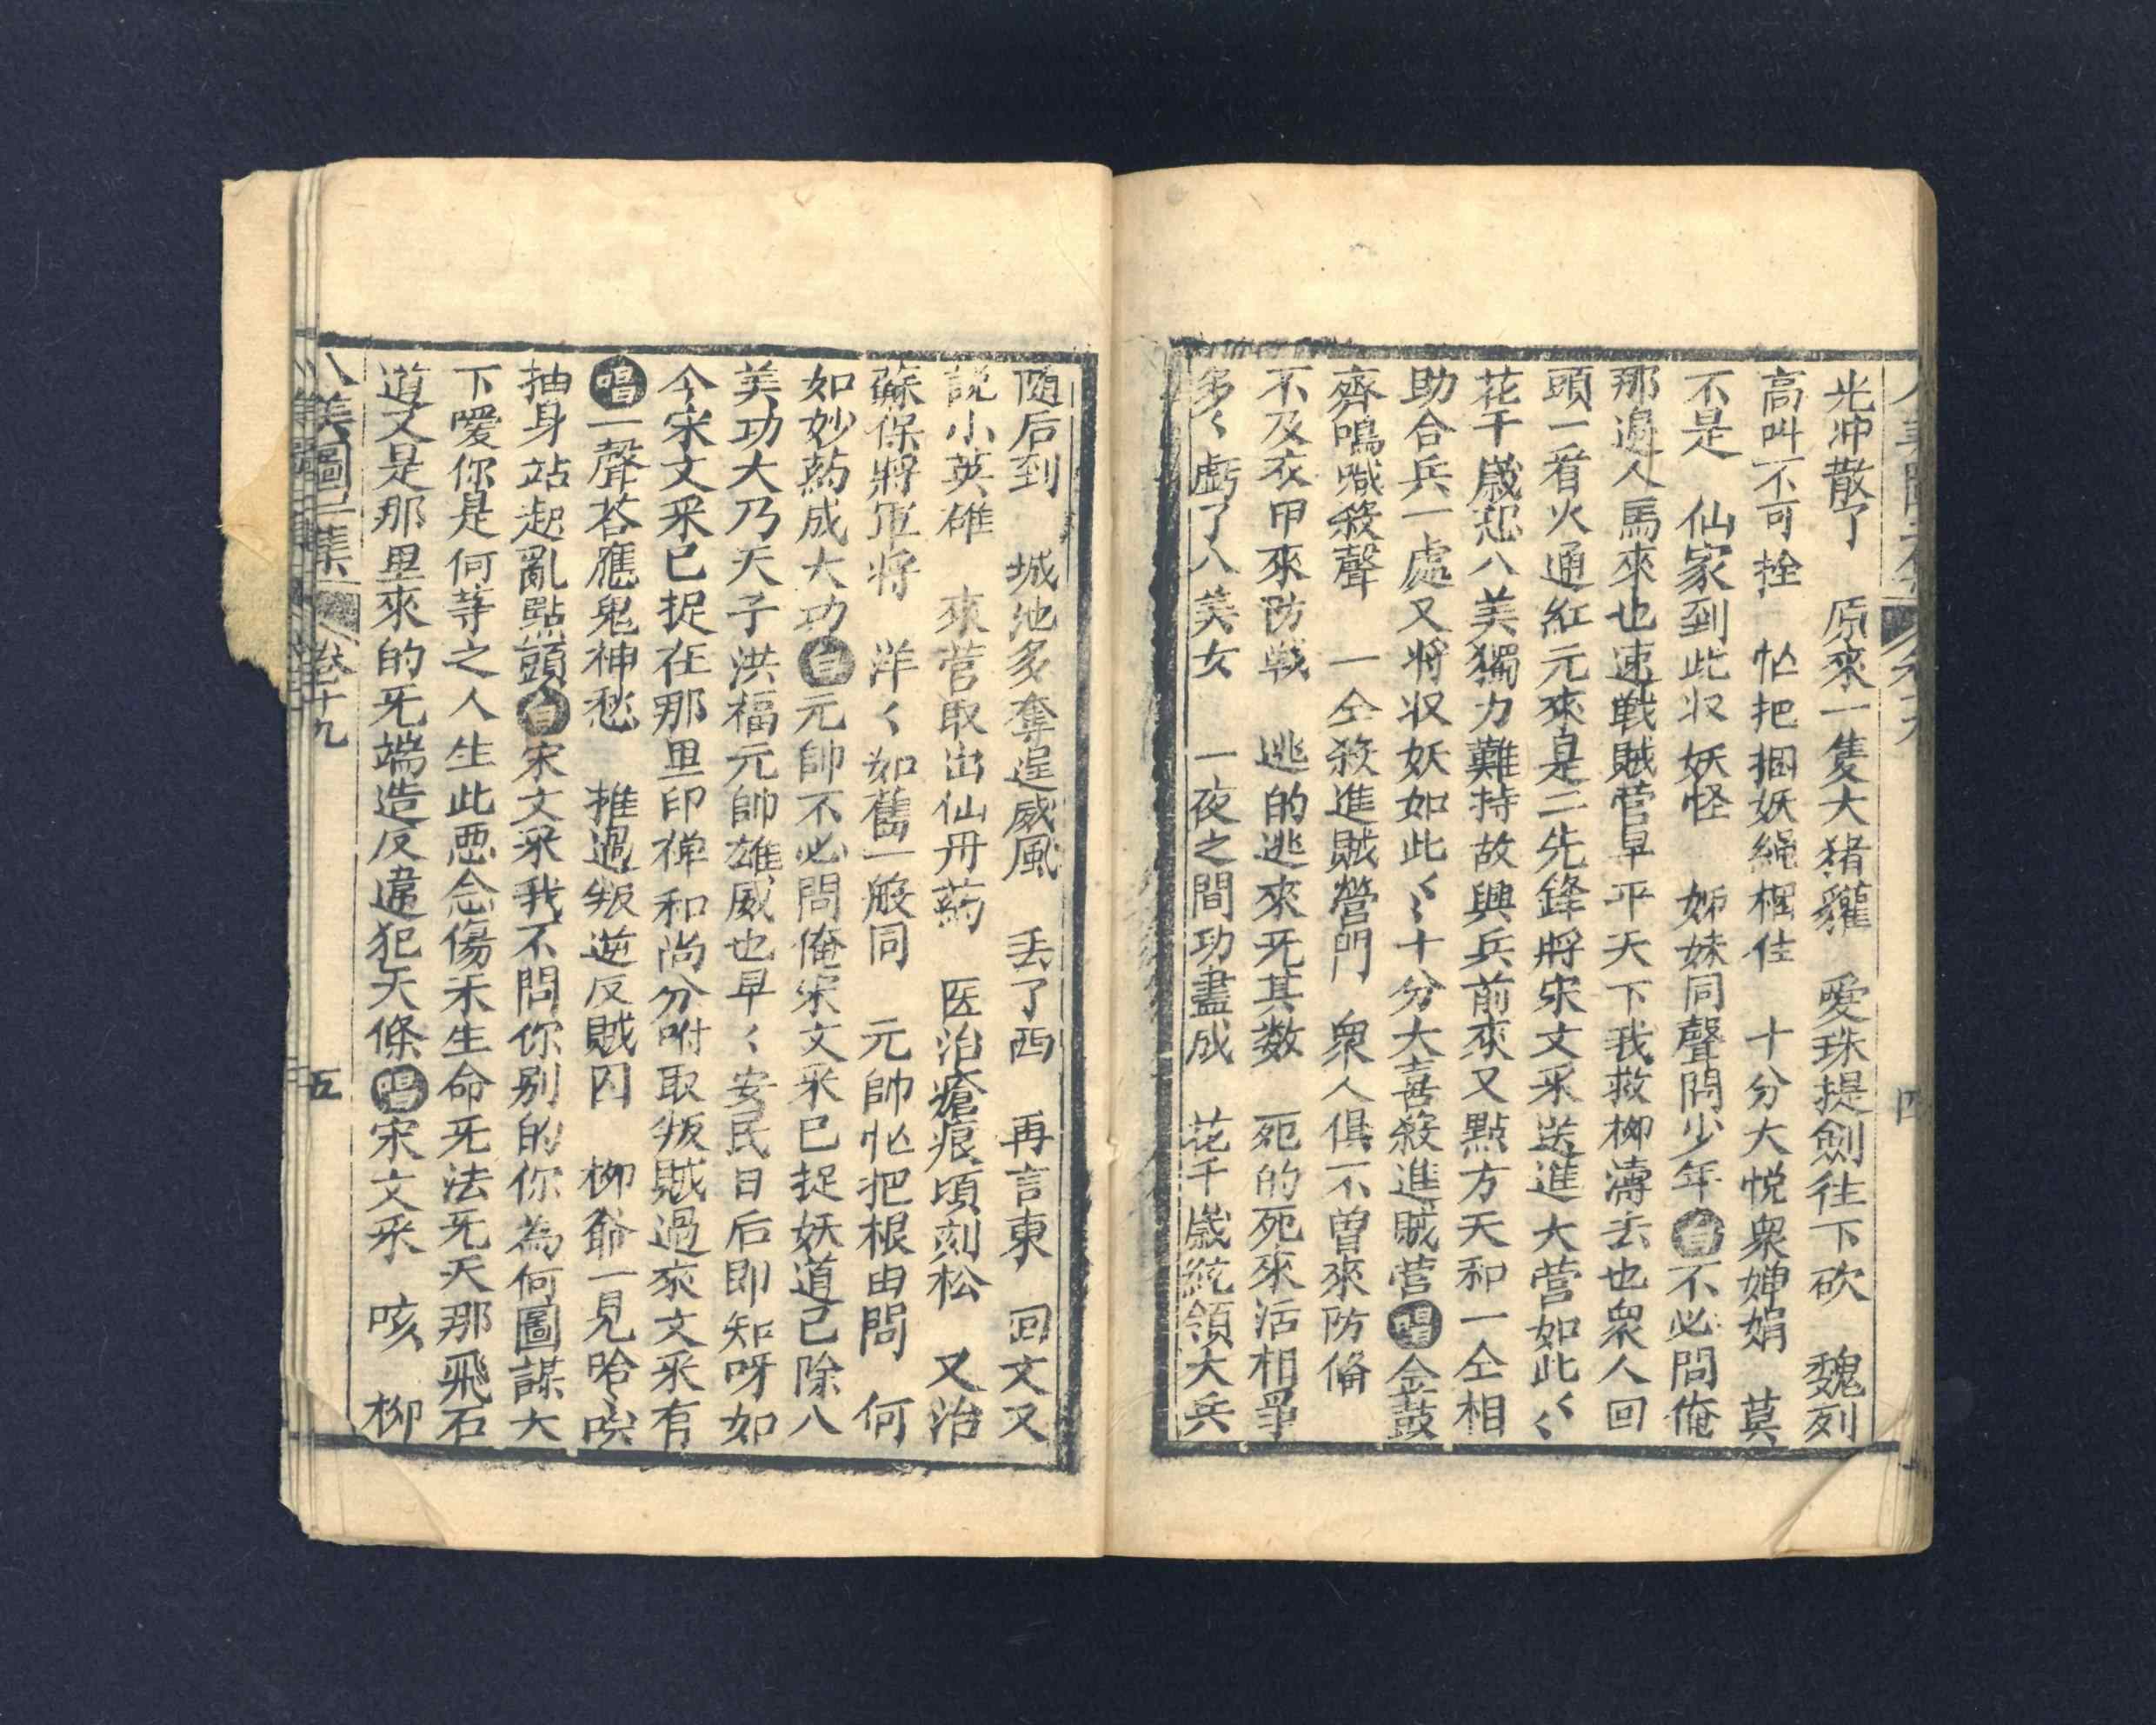 光冲散了　原來一隻大猪獾　愛珠提劍往下砍　魏列
高叫不可拴　忙把捆妖繩梱住　十分大悦衆婵娟　莫
不是　仙家到此収妖怪　姊妹同聲問少年白不必問俺
那邉人馬來也速戰賊营早平天下我救柳濤去也衆人回
頭一看火通紅元來是二先鋒將宋文采送進大营如此〻〻
花千歲恐八美獨力難持故興兵前來又點方天和一仝相
助合兵一處又将収妖如此〻〻十分大喜殺進賊营唱金鼓
齊鳴喊殺聲　一仝殺進賊營門　衆人俱不曽來防俻
不及衣甲來防戰　逃的逃來死其数　死的死來活相爭
多〻虧了八美女　一夜之間功盡成　花千歲統領大兵
随后到　城池多奪逞威風　丢了西　再言東　回文又
説小英雄　來营取出仙丹药　医治瘡痕頃刻松　又治
蘇保將軍将　洋〻如舊一般同　元帥忙把根由問　何
如妙药成大功白元帥不必問俺宋文采已捉妖道已除八
美功大乃天子洪福元帥雄威也早〻安民日后即知呀如
今宋文采已捉在那里印禅和尚分咐取叛賊過來文采有
唱一聲荅應鬼神愁　推過叛逆反賊囚　柳爺一見哈〻唉
抽身站起亂點頭白宋文采我不問你别的你為何圖謀大
下嗳你是何等之人生此悪念傷禾生命死法死天那飛石
道又是那里來的死端造反違犯天條唱宋文采　咳　柳
八美圖三集　卷十九　五